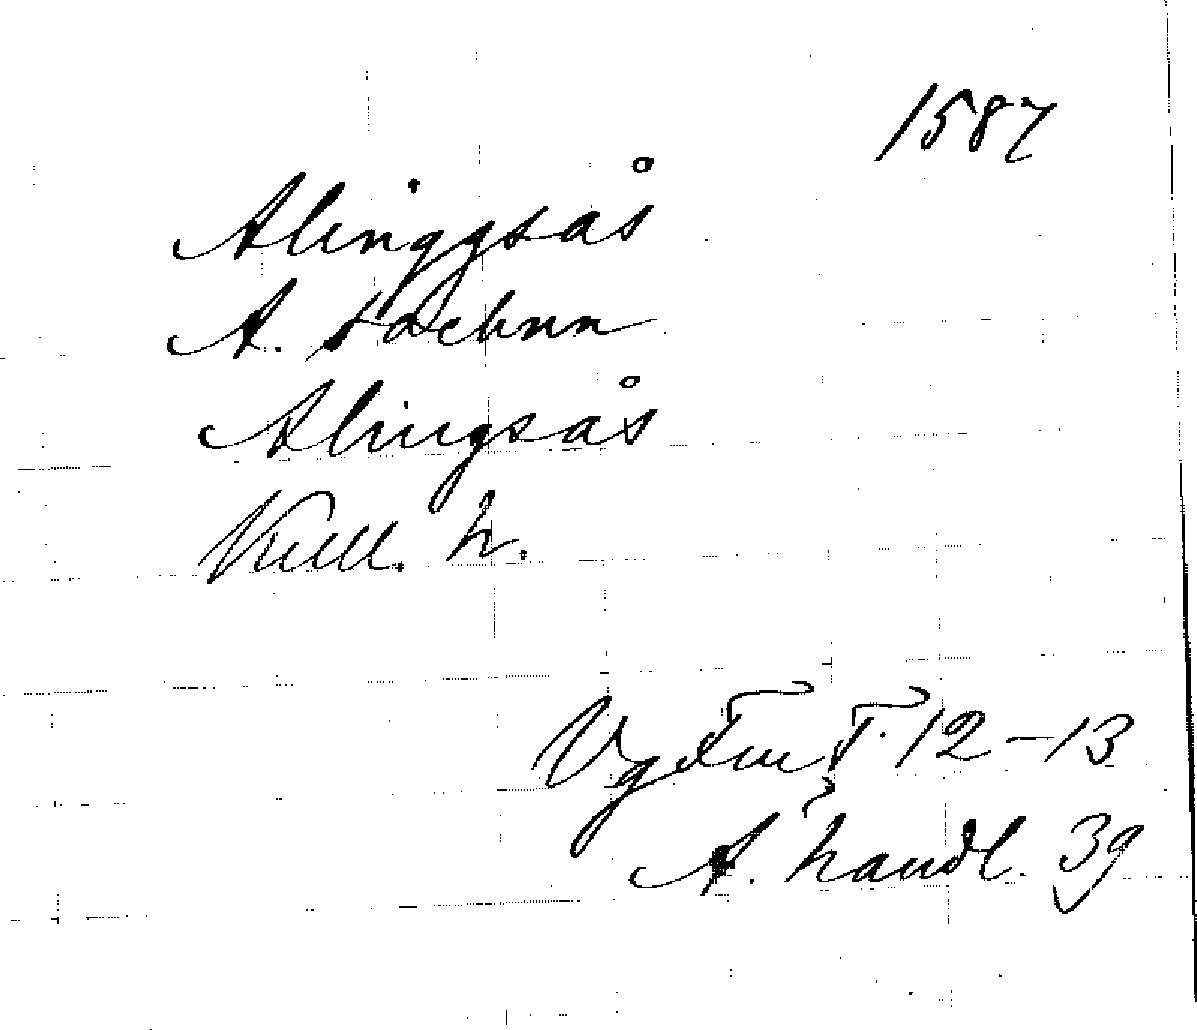 1587
Alinggsås
A. sochnn
Alingsås
Kull. h.
Vg 12-13
A. handl. 39